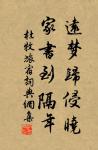 遠夢歸侵曉
家書到隔年
杜牧旅宿詞典網集